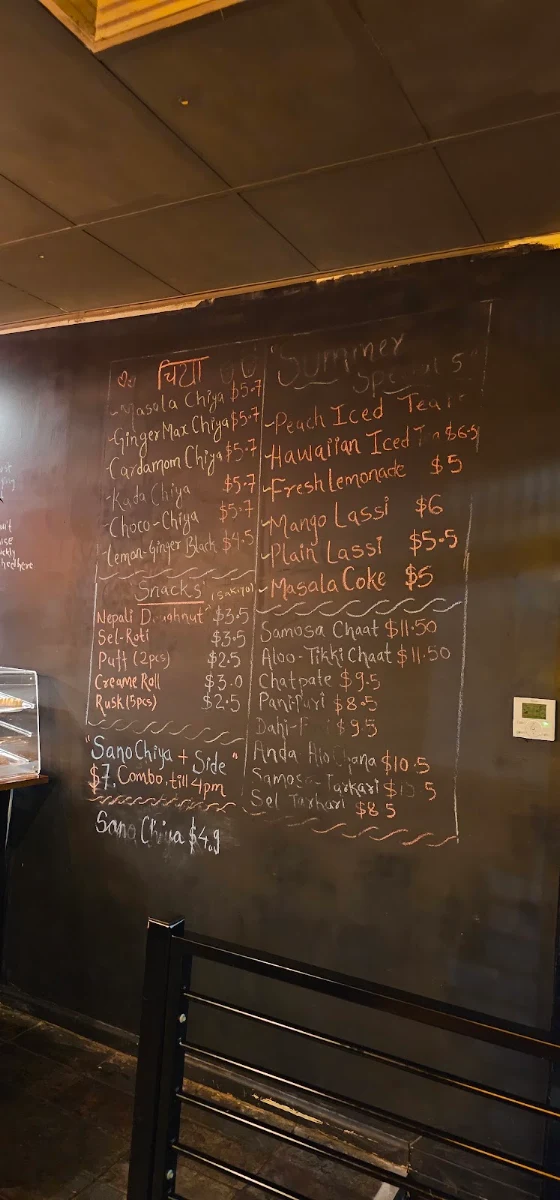 चिया
-Masala Chiya $5.7
-Ginger Max Chiya $5.7
-Cardamom Chiya $5.7
-Kada Chiya $5.7
-Choco-Chiya $5.7
-Lemon-Ginger Black $4.5
Snacks
Nepali $3.5
Sel-Roti $3.5
Puff (2pcs) $2.5
Creame Roll $3.0
Rusk (5pcs) $2.5
"Sano Chiya + Side"
$7, Combo, till 4pm
Sano Chiya $4.9
"Summer
Special
-Peach Iced Tea
-Hawaiian Iced $6.5
-Fresh Lemonade $5
-Mango Lassi $6
-Plain Lassi $5.5
-Masala Coke $5
Samosa Chaat $11.50
Aloo-Tikki Chaat $11.50
Chatpate $9.5
PaniPuri $8.5
Dahi- $9.5
Anda Alo Chana $10.5
Samosa Tarkari
Sel Tarkari $8.5